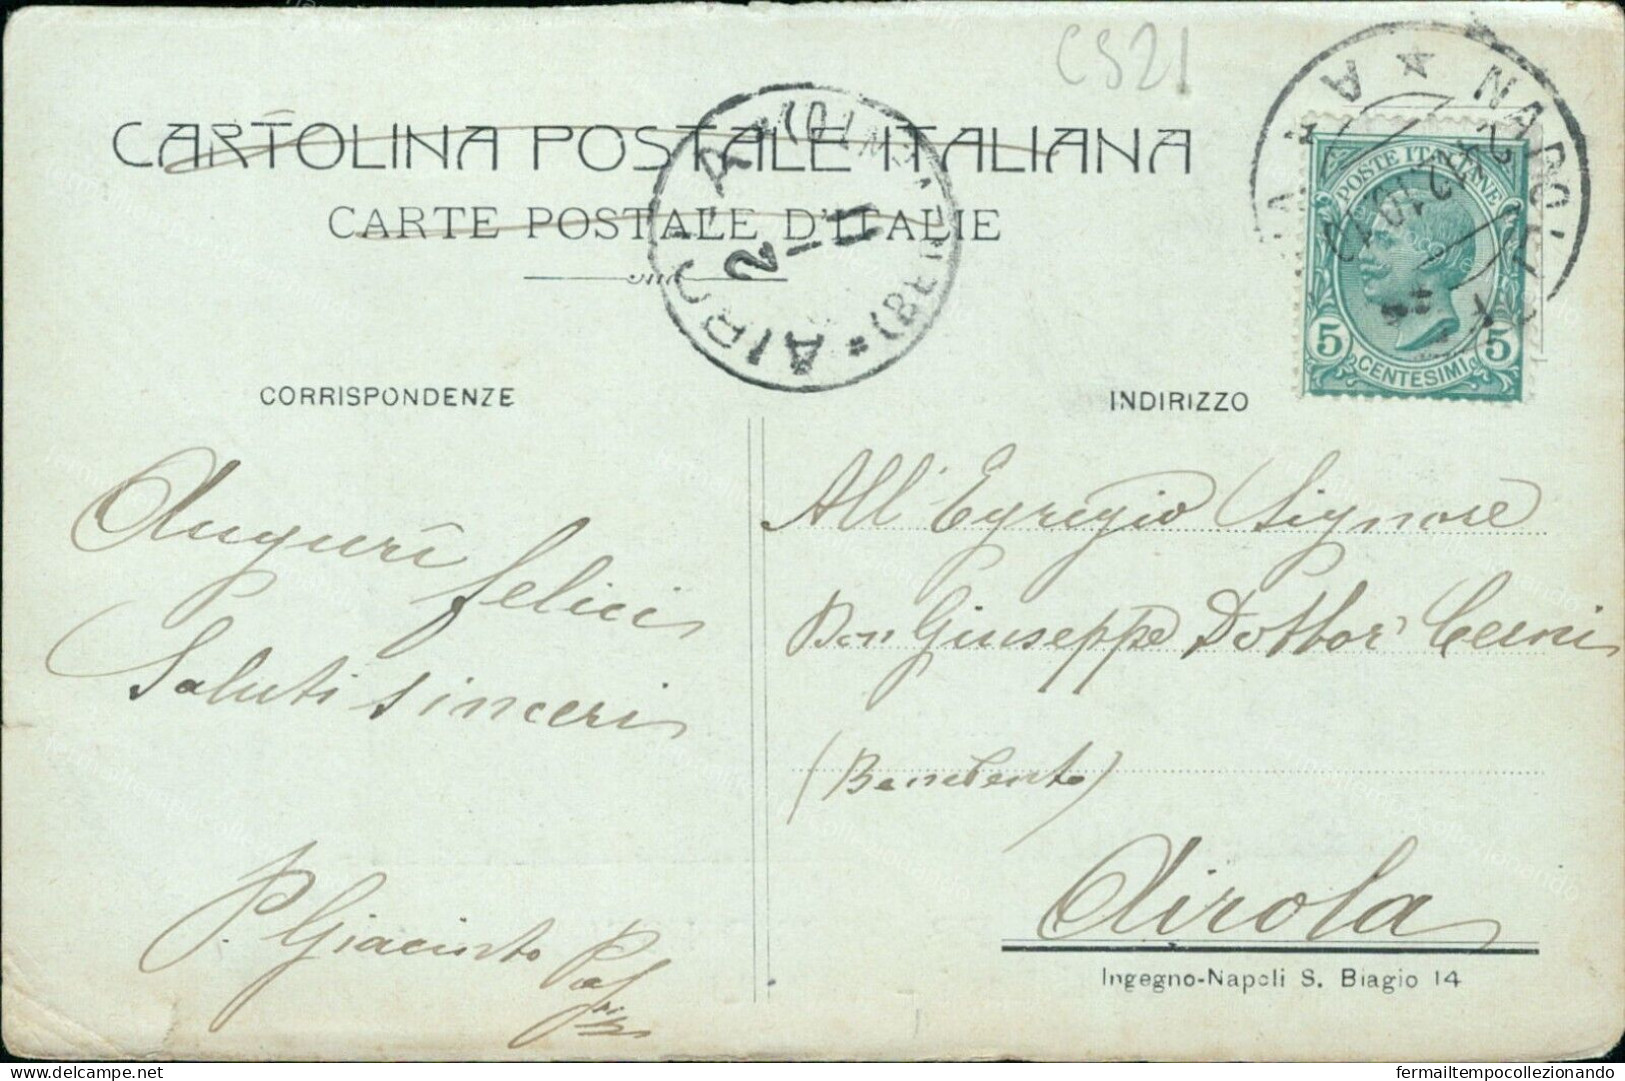 CS21
CARTOLINA POSTALE ITALIANA
CARTE POSTALE D'ITALIE
AIROLA * (BENEVENTO)
2 11
NAPOLI
POSTE ITALIANE
5 CENTESIMI 5
CORRISPONDENZE
INDIRIZZO
Auguri felici
Saluti sinceri
P. Giacinto
All' Egregio Signore
Don Giuseppe Dottor Cerni
(Benevento)
Airola
Ingegno-Napoli S. Biagio 14
fermailtempocollezionando